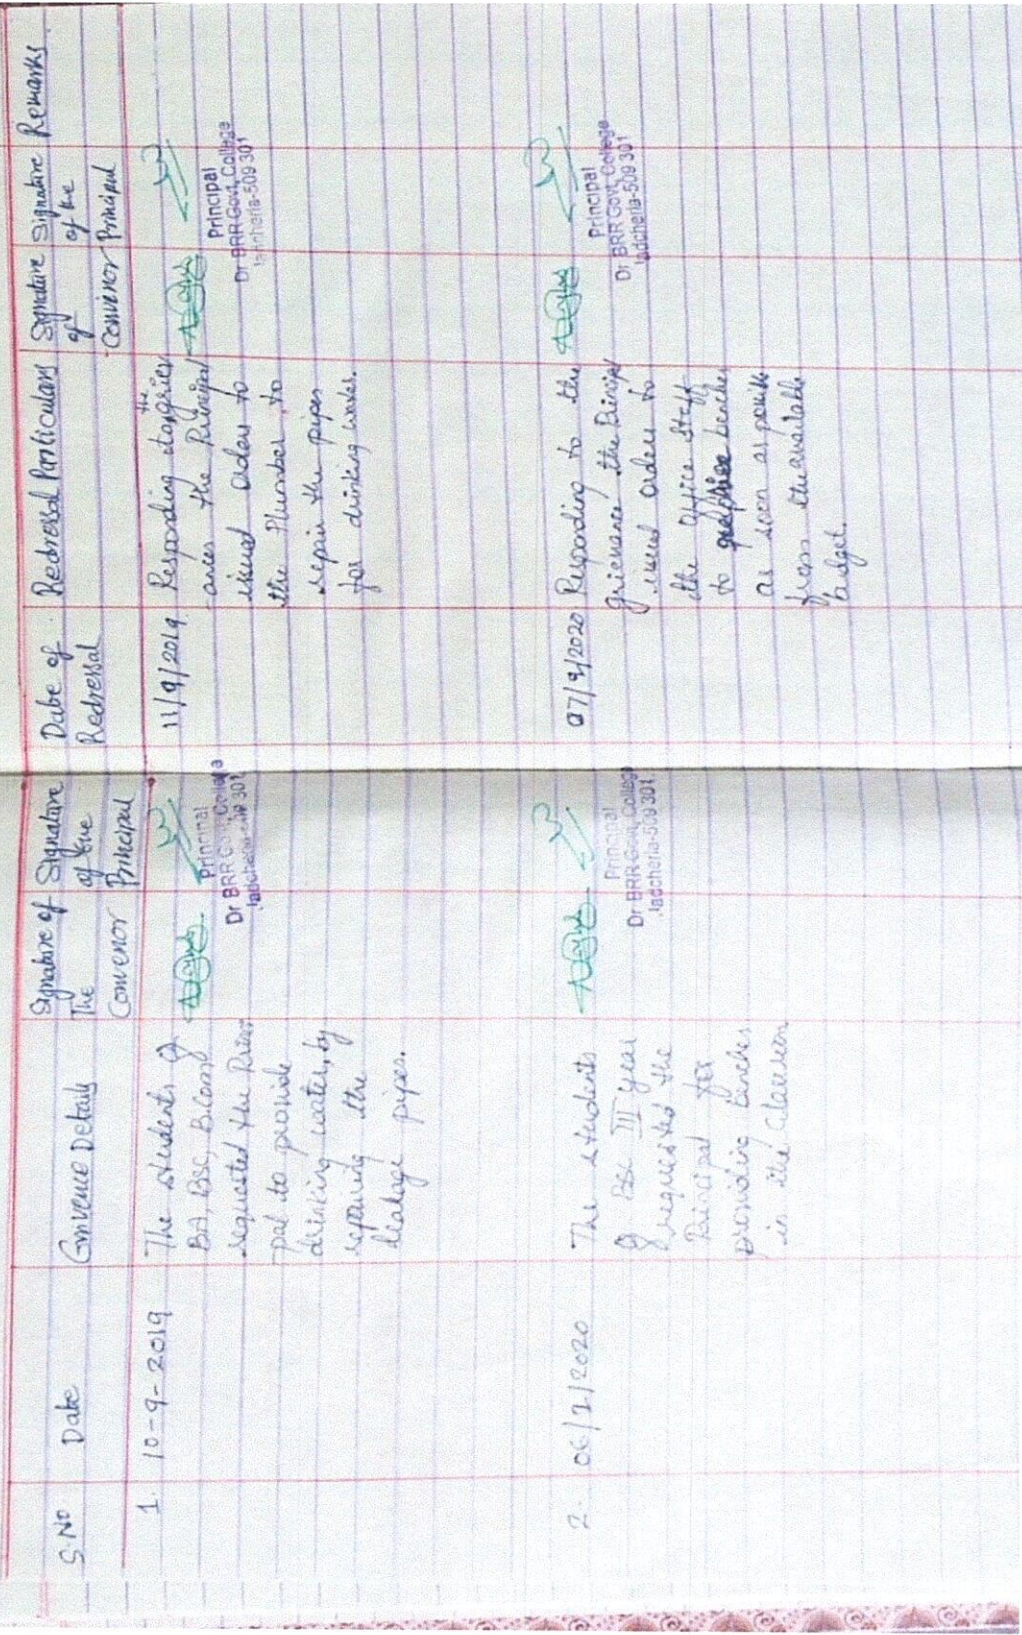 S.No
Date
Grivence Details
Signature of
The
Convenor
Signature
of the
Principal
Date of
Redressal
Redressal Particulars
Signature
of
Convinor
Signature
of the
Principal
Remarks
1.
10-9-2019
The students of
BA, BSC, B.Com
requested the Princi
pal to provide
drinking water, by
repairing the
leakage pipes.
Principal
Dr BRR Govt. College
Jadcherla-509 301
11/9/2019
Responding to the griev
-ances the Principal
issued orders to
the Plumber to
repair the pipes
for drinking water.
Principal
Dr BRR Govt. College
Jadcherla-509 301
2.
06/2/2020
The students
of BSC III year
requested the
Principal for
providing benches
in the Classroom
Principal
Dr BRR Govt. College
Jadcherla-509 301
07/2/2020
Responding to the
grievance the Principal
issued orders to
the office staff
to benches
as soon as possible
from the available
budget.
Principal
Dr BRR Govt. College
Jadcherla-509 301